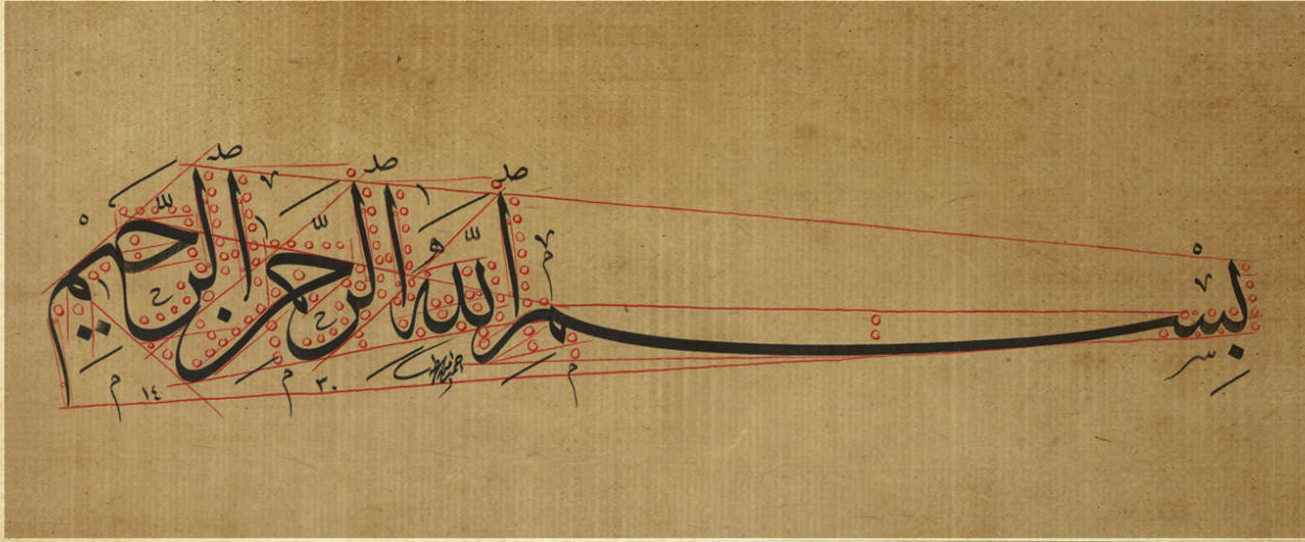 بِسْمِ اللَّهِ الرَّحْمَٰنِ الرَّحِيمِ
١٤ ٣٠